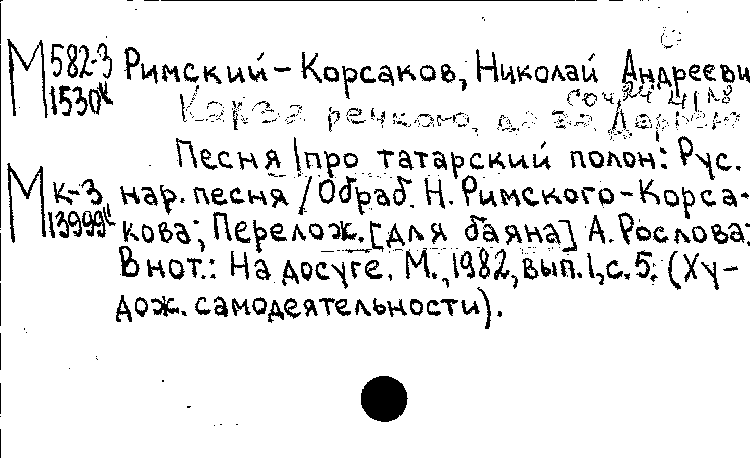 М 582-3 Римский-Корсаков, Николай Андрееви
1530к
Как за речкою, да за Дарьею
Песня про татарский полон: Рус.
М к-3 нар. песня / Обраб. Н. Римского-Корса-
13999к кова; Перелож. [для баяна] А. Рослова:
В нот.: На досуге. М., 1982, вып. 1, с. 5. (Ху-
дож. самодеятельности).